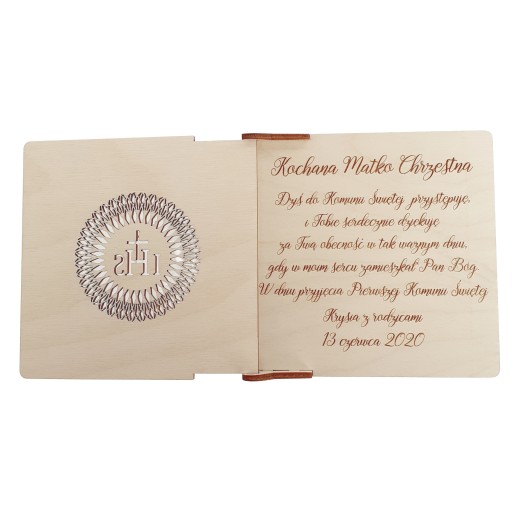 IHS
Kochana Matko Chrzestna
Dziś do Komunii Świętej przystępuję,
i Tobie serdecznie dziękuję
za Twą obecność w tak ważnym dniu,
gdy w moim sercu zamieszkał Pan Bóg.
W dniu przyjęcia Pierwszej Komunii Świętej
Krysia z rodzicami
13 czerwca 2020